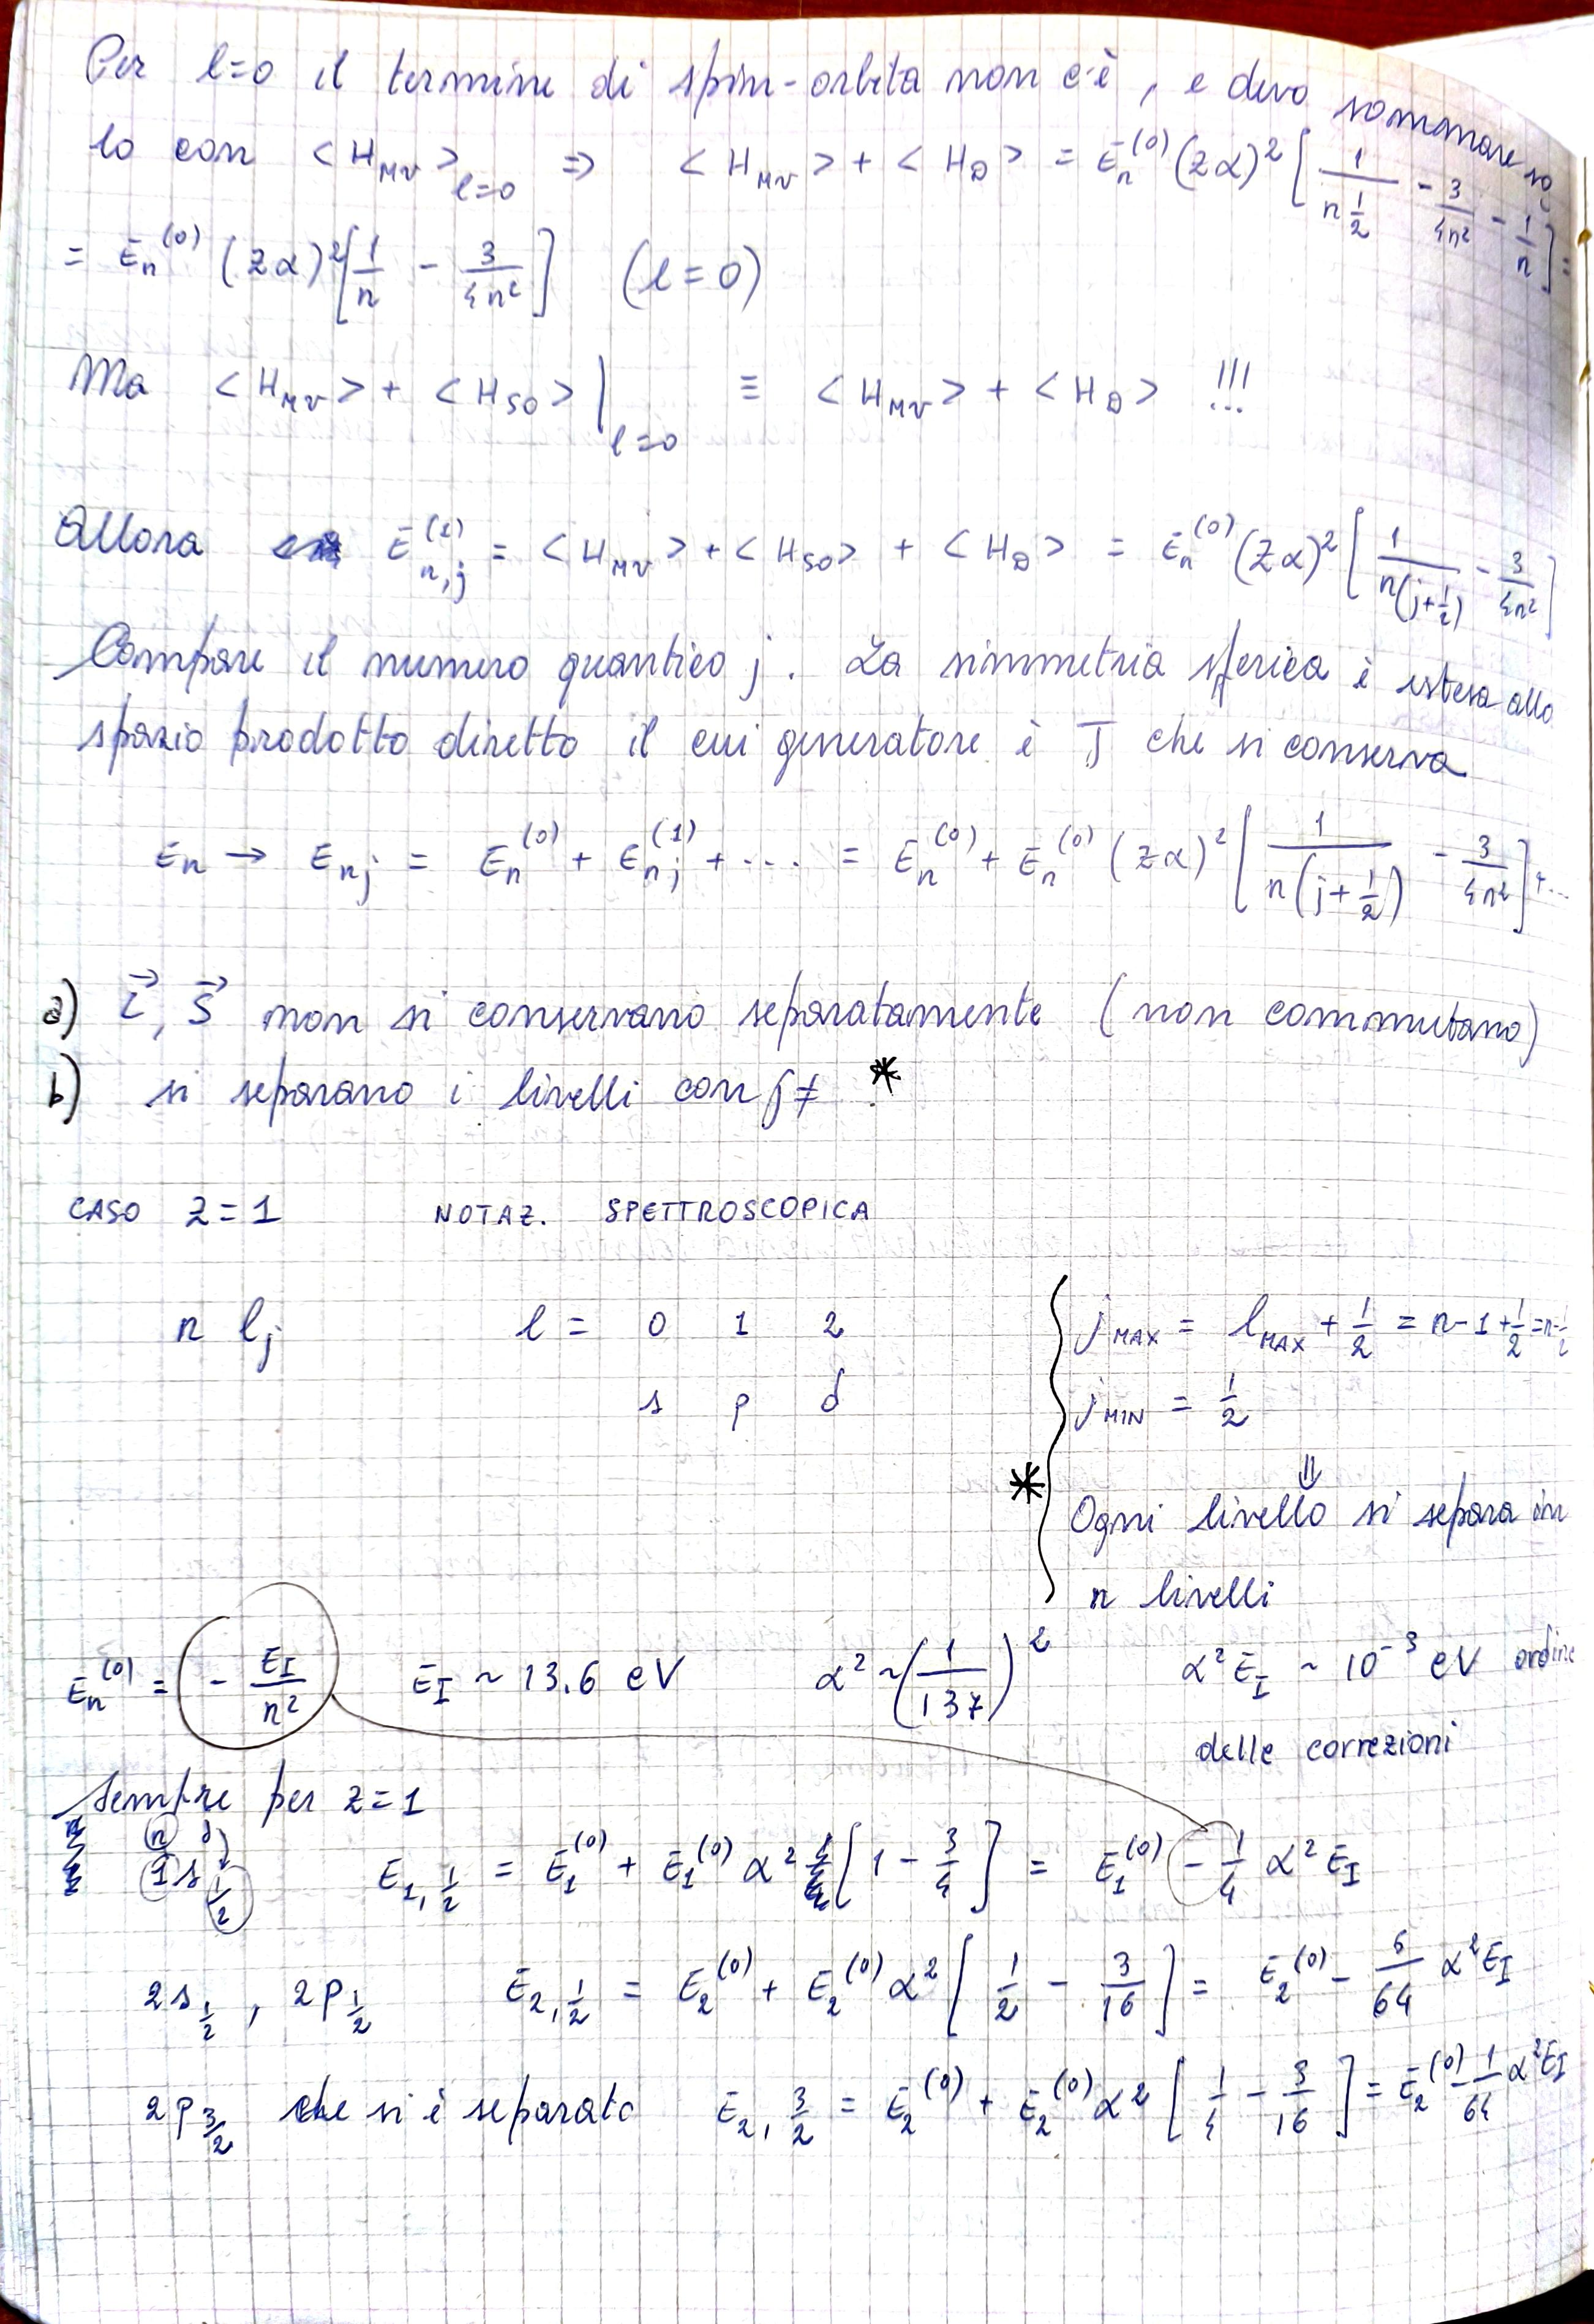 Per l=0 il termine di spin-orbita non c'è, e devo sommare so
lo con <H_MV>_{l=0} ⇒ <H_MV> + <H_D> = E_n^(0) (Zα)^2 [ 1/(n 1/2) - 3/(4n^2) - 1/n ] =
= E_n^(0) (Zα)^2 [ 1/n - 3/(4n^2) ] (l=0)
Ma <H_MV> + <H_SO> |_{l=0} ≡ <H_MV> + <H_D> !!!
Allora E_{n,j}^(1) = <H_MV> + <H_SO> + <H_D> = E_n^(0) (Zα)^2 [ 1/(n(j+1/2)) - 3/(4n^2) ]
Compare il numero quantico j. La simmetria sferica è estesa allo
spazio prodotto diretto il cui generatore è J che si conserva
E_n → E_nj = E_n^(0) + E_nj^(1) + ... = E_n^(0) + E_n^(0) (Zα)^2 [ 1/(n(j+1/2)) - 3/(4n^2) ] + ...
a) L⃗, S⃗ non si conservano separatamente (non commutano)
b) si separano i livelli con j≠ *
CASO Z=1 NOTAZ. SPETTROSCOPICA
n l_j l = 0 1 2
s p d
j_MAX = l_MAX + 1/2 = n-1+1/2 = n-1/2
j_MIN = 1/2
⇓
* Ogni livello si separa in
n livelli
E_n^(0) = (- E_I/n^2) E_I ~ 13.6 eV α^2 ~ (1/137)^2 α^2 E_I ~ 10^-3 eV ordine
delle correzioni
Sempre per Z=1
n j
1s_{1/2} E_{1,1/2} = E_1^(0) + E_1^(0) α^2 [ 1 - 3/4 ] = E_1^(0) - 1/4 α^2 E_I
2s_{1/2}, 2p_{1/2} E_{2,1/2} = E_2^(0) + E_2^(0) α^2 [ 1/2 - 3/16 ] = E_2^(0) - 5/64 α^2 E_I
2p_{3/2} che si è separato E_{2,3/2} = E_2^(0) + E_2^(0) α^2 [ 1/4 - 3/16 ] = E_2^(0) - 1/64 α^2 E_I